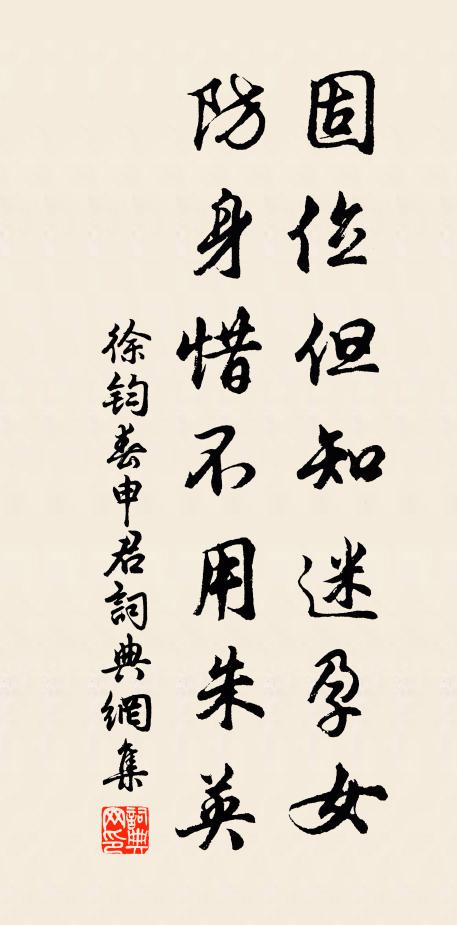 固位但知迷孕女
防身惜不用朱英
徐鈞春申君詞典網集
詞典網印